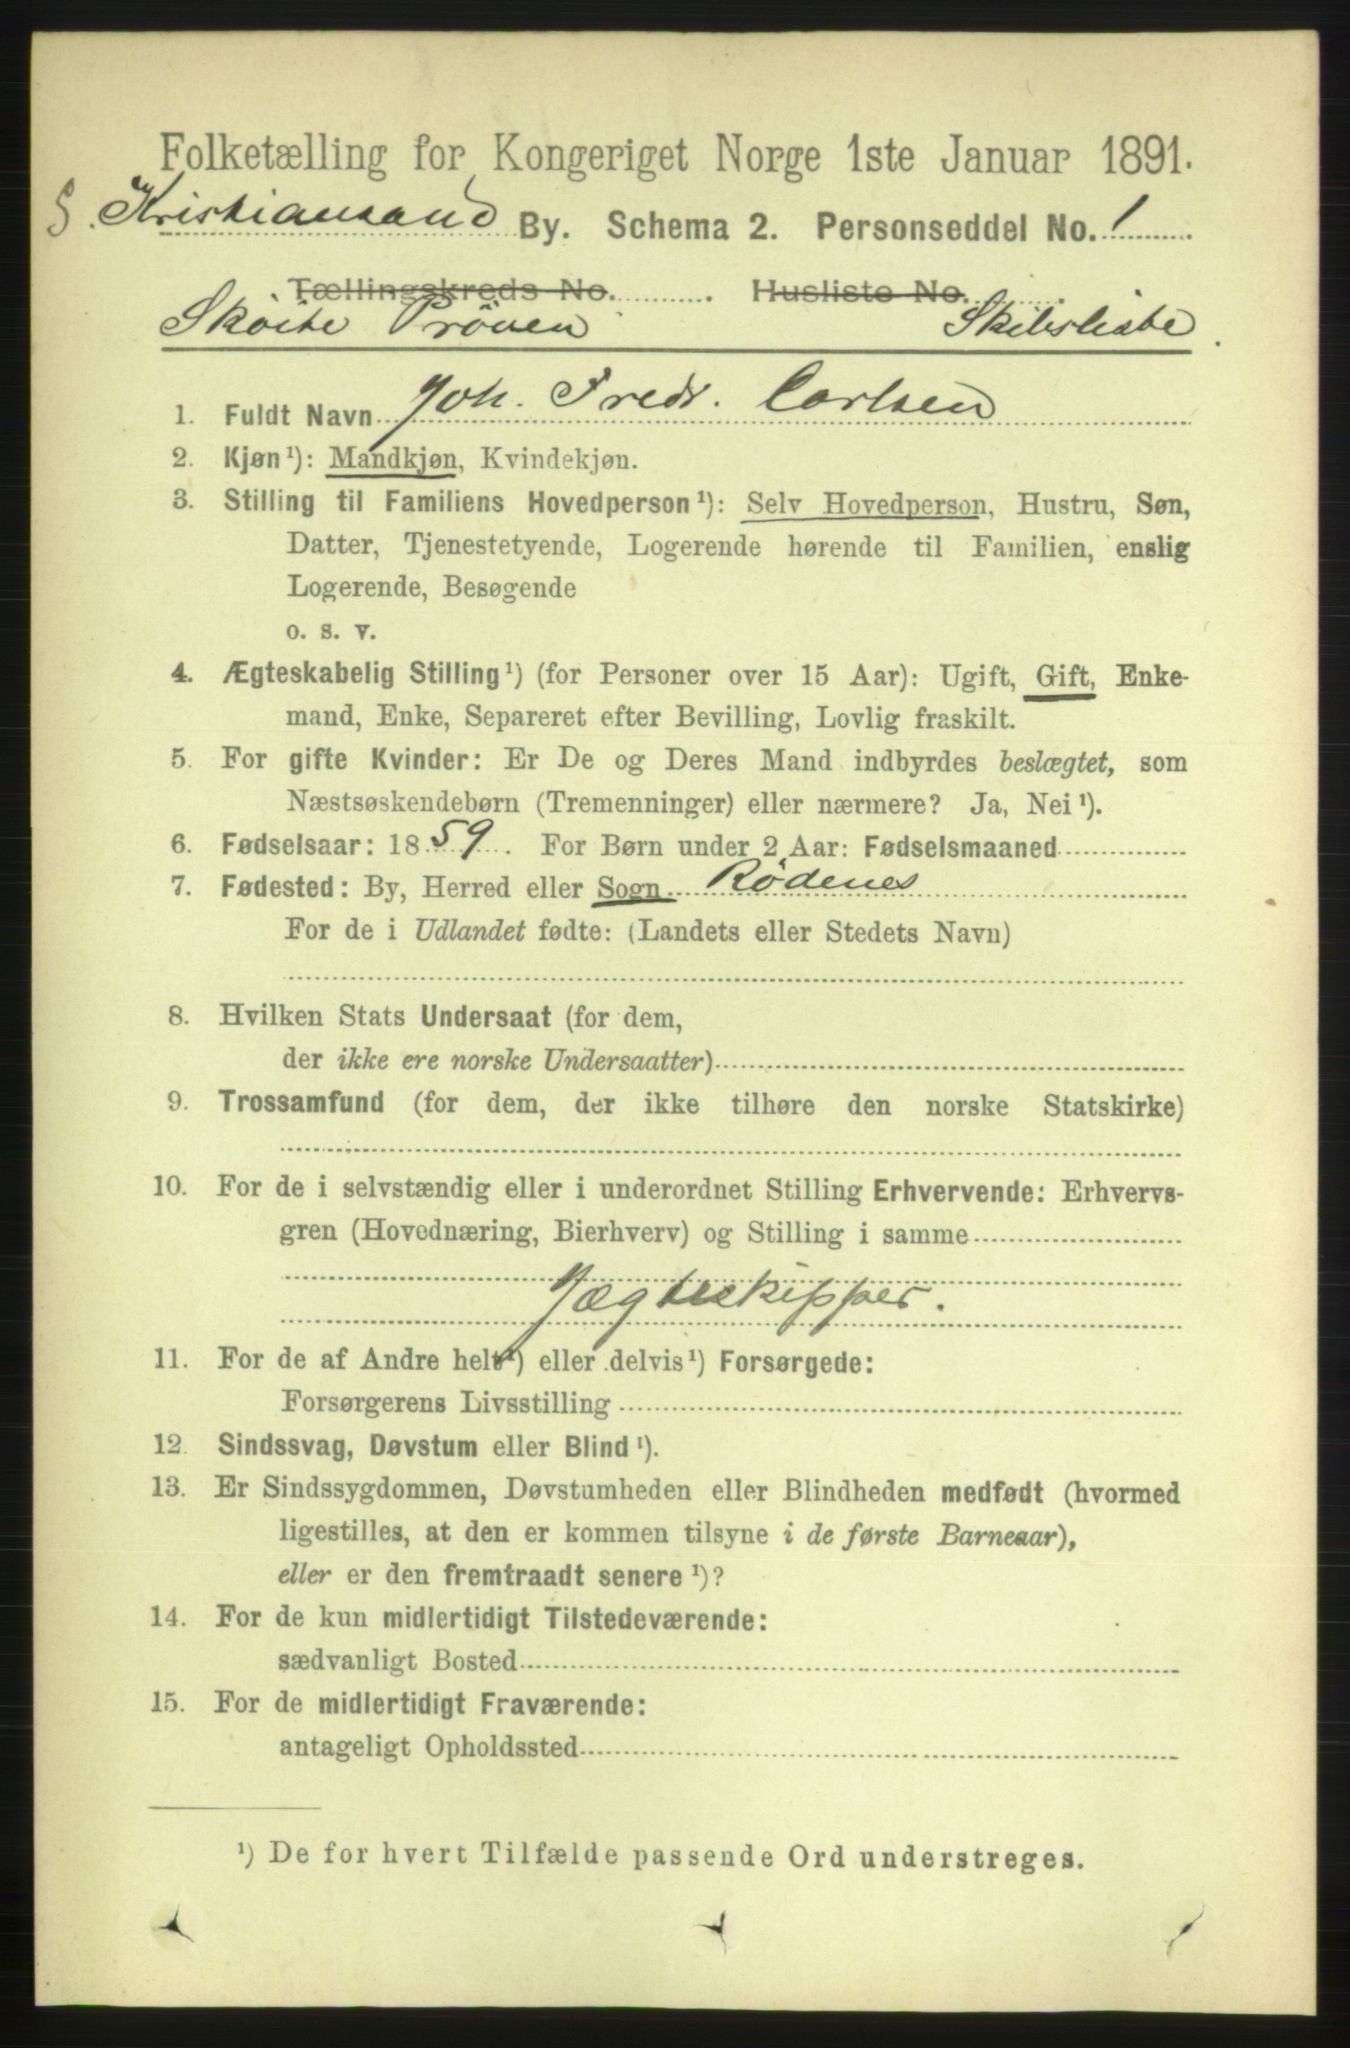 Folketælling for Kongeriget Norge 1ste Januar 1891.
Kristiansand By. Schema 2. Personseddel No. 1
Tællingskreds No. Husliste No.
Skøite Prøven Skibsliste
1. Fuldt Navn Joh. Fredr. Carlsen
2. Kjøn¹): Mandkjøn, Kvindekjøn.
3. Stilling til Familiens Hovedperson¹): Selv Hovedperson, Hustru, Søn,
Datter, Tjenestetyende, Logerende hørende til Familien, enslig
Logerende, Besøgende
o. s. v.
4. Ægteskabelig Stilling¹) (for Personer over 15 Aar): Ugift, Gift, Enke-
mand, Enke, Separeret efter Bevilling, Lovlig fraskilt.
5. For gifte Kvinder: Er De og Deres Mand indbyrdes beslægtet, som
Næstsøskendebørn (Tremenninger) eller nærmere? Ja, Nei¹).
6. Fødselsaar: 1859. For Børn under 2 Aar: Fødselsmaaned
7. Fødested: By, Herred eller Sogn Rödenes
For de i Udlandet fødte: (Landets eller Stedets Navn)
8. Hvilken Stats Undersaat (for dem,
der ikke ere norske Undersaatter)
9. Trossamfund (for dem, der ikke tilhøre den norske Statskirke)
10. For de i selvstændig eller i underordnet Stilling Erhvervende: Erhvervs-
gren (Hovednæring, Bierhverv) og Stilling i samme
Jægteskipper.
11. For de af Andre helt¹) eller delvis¹) Forsørgede:
Forsørgerens Livsstilling
12. Sindssvag, Døvstum eller Blind¹).
13. Er Sindssygdommen, Døvstumheden eller Blindheden medfødt (hvormed
ligestilles, at den er kommen tilsyne i de første Barneaar),
eller er den fremtraadt senere¹)?
14. For de kun midlertidigt Tilstedeværende:
sædvanligt Bosted
15. For de midlertidigt Fraværende:
antageligt Opholdssted
¹) De for hvert Tilfælde passende Ord understreges.